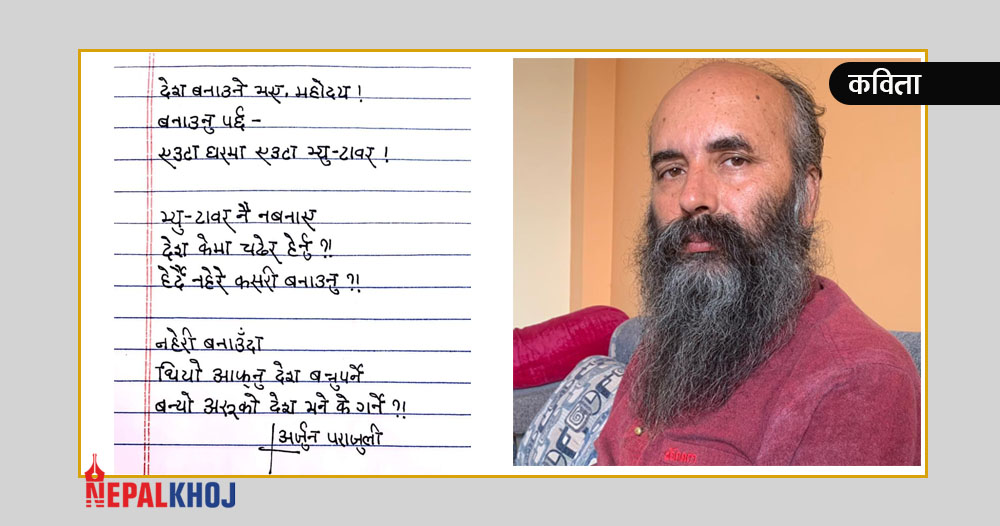 कविता
देश बनाउने भए, महोदय !
बनाउनु पर्छ -
एउटा घरमा एउटा भ्यु-टावर !
भ्यु-टावर नै नबनाए
देश केमा चढेर हेर्नु ?!
हेर्दै नहेरे कसरी बनाउनु ?!
नहेरी बनाउँदा
थियो आफ्‌नु देश बन्नुपर्ने
बन्यो अरूको देश भने के गर्ने ?!
अर्जुन पराजुली
NEPALKHOJ